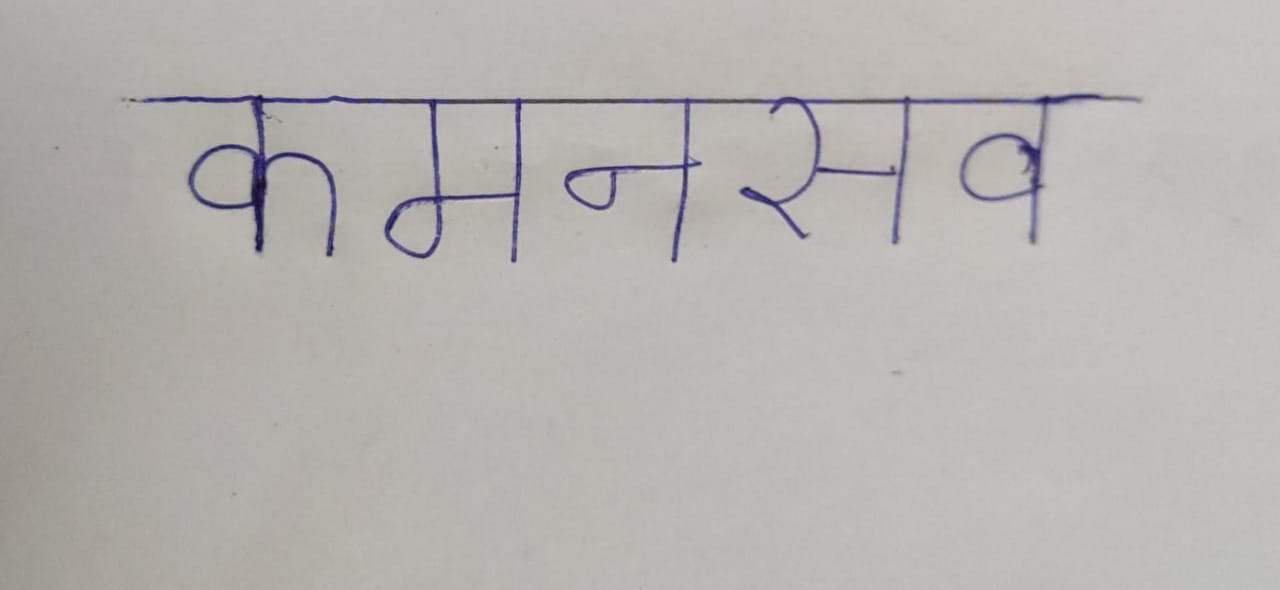 कमनसव